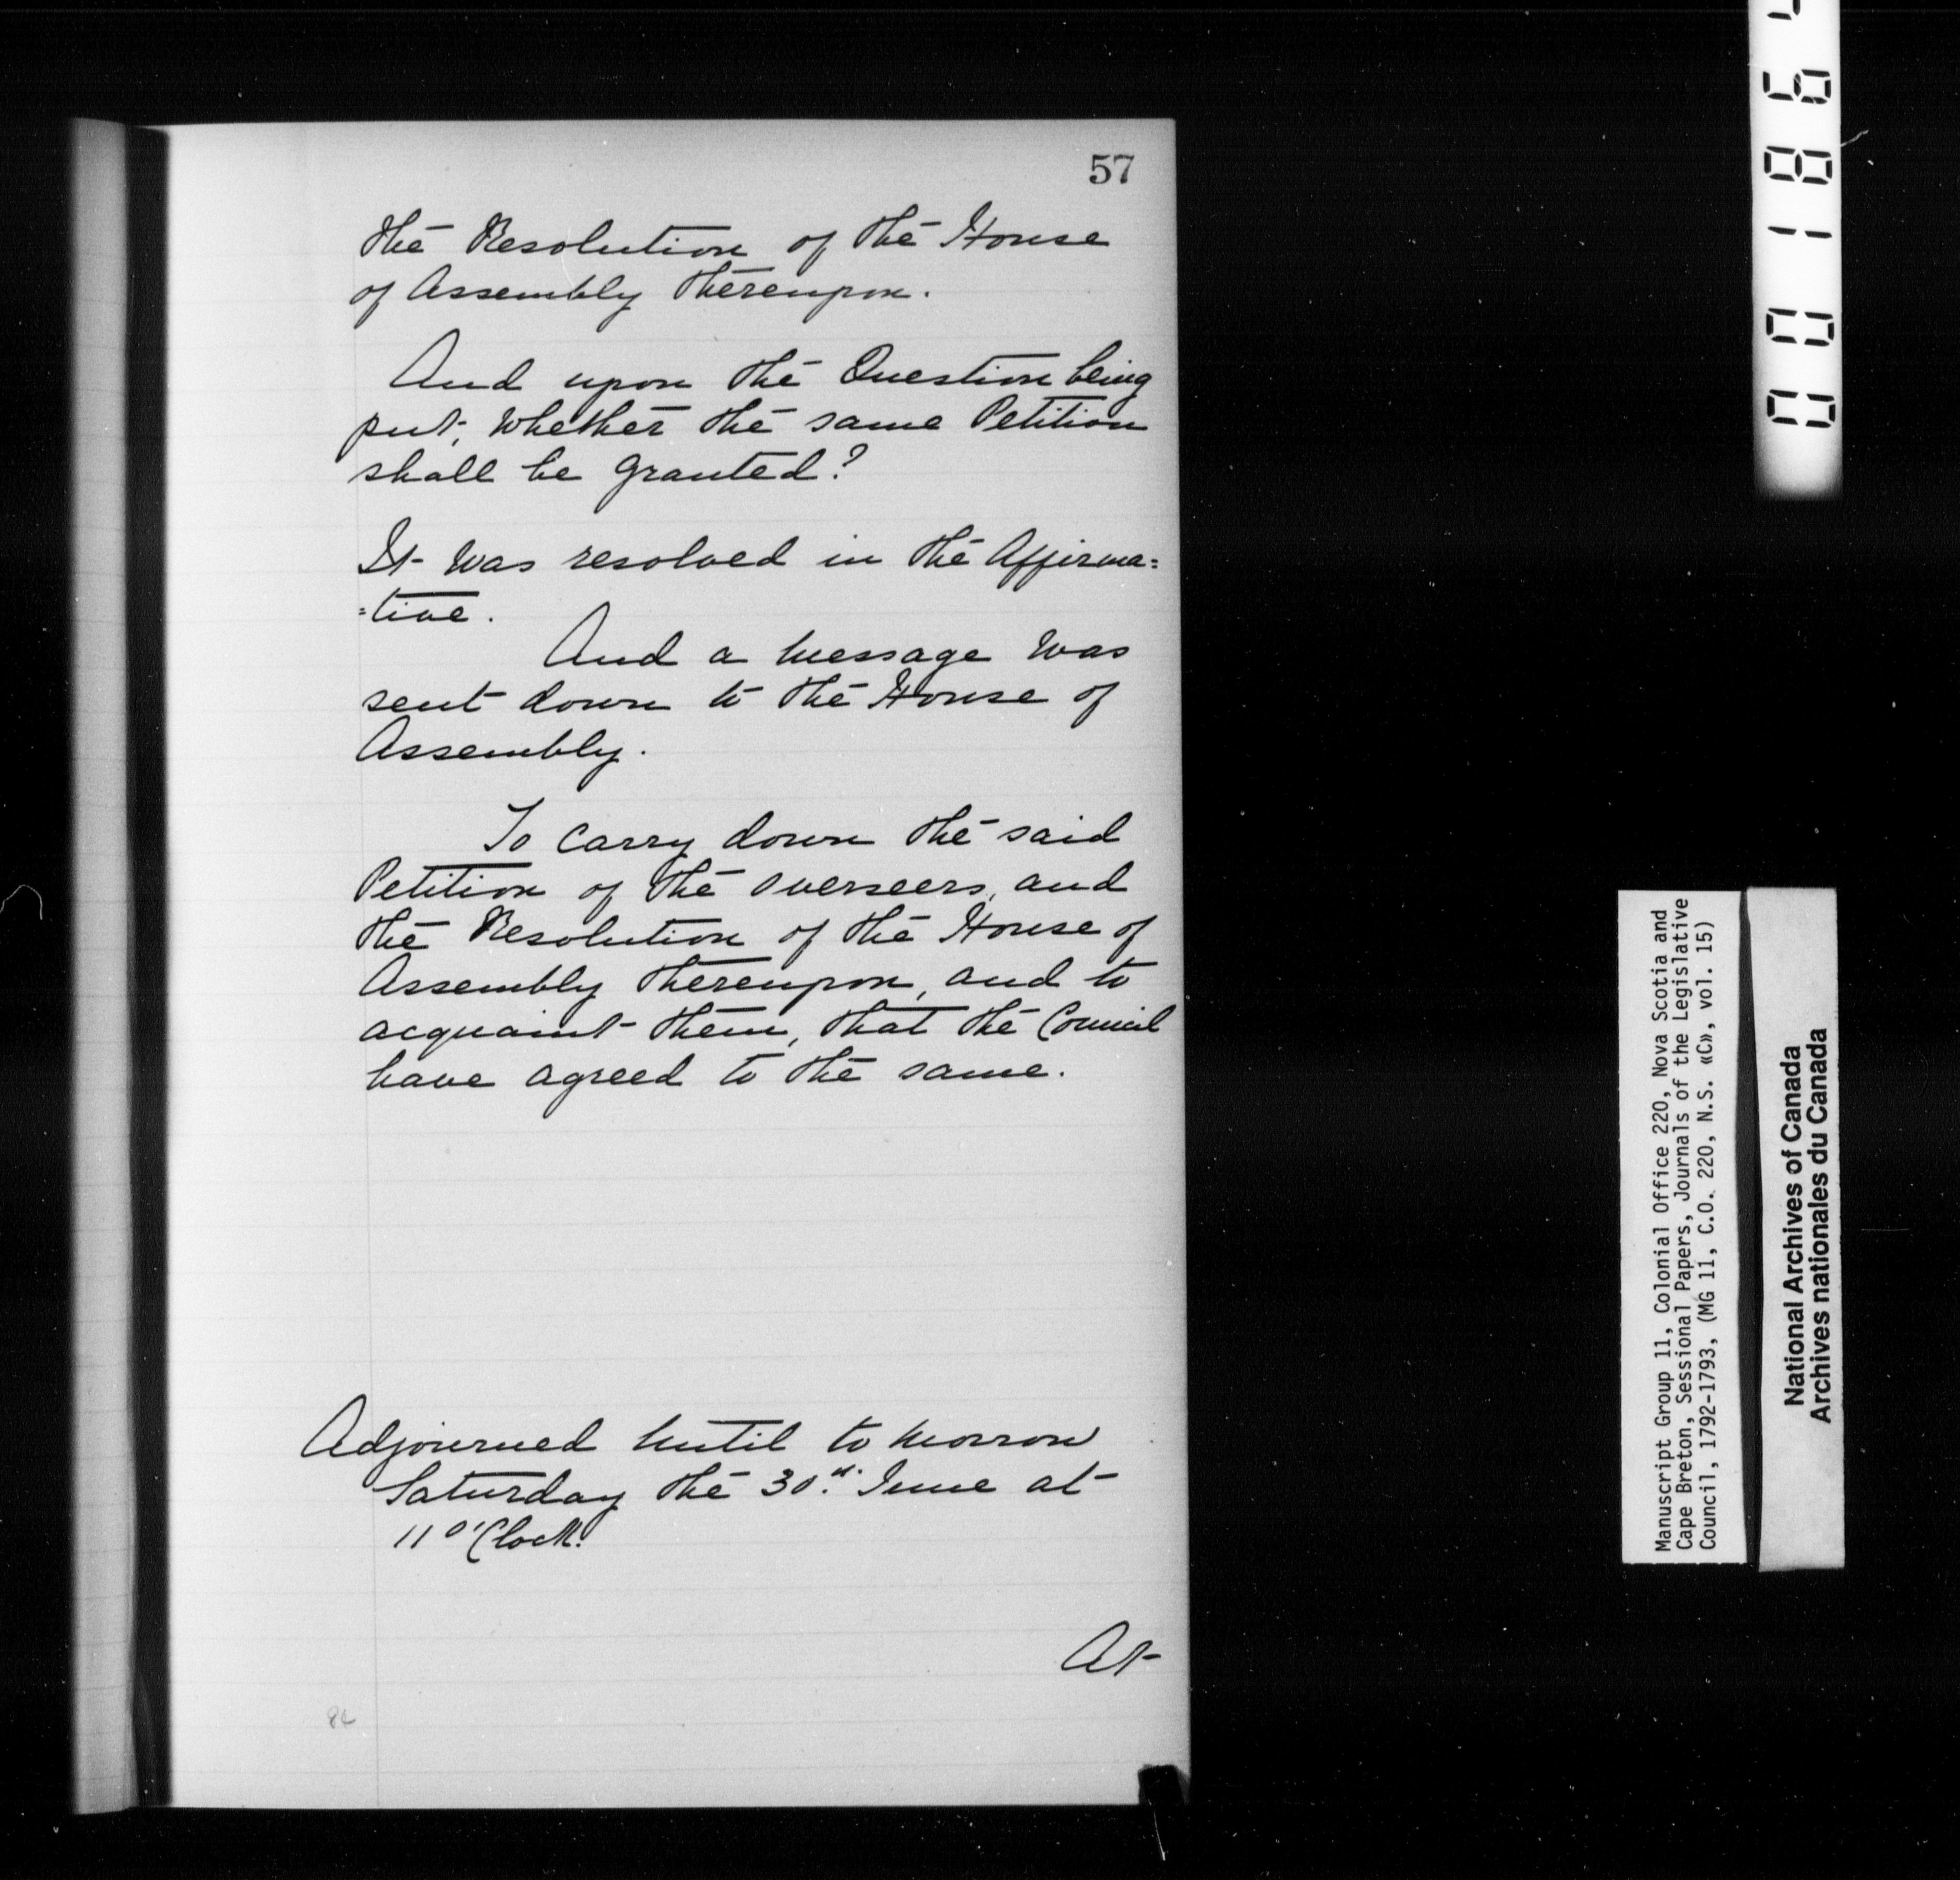 57
the Resolution of the House
of Assembly thereupon.
And upon the Question being
put, whether the same Petition
shall be granted?
It was resolved in the Affirma=
=tive.
And a message was
sent down to the House of
Assembly.
To carry down the said
Petition of the overseers, and
the Resolution of the House of
Assembly thereupon, and to
acquaint them, that the Council
have agreed to the same.
Adjourned until to morrow
Saturday the 30th June at
11 O'Clock.
At
Manuscript Group 11, Colonial Office 220, Nova Scotia and
Cape Breton, Sessional Papers, Journals of the Legislative
Council, 1792-1793, (MG 11, C.O. 220, N.S. «C», vol. 15)
National Archives of Canada
Archives nationales du Canada